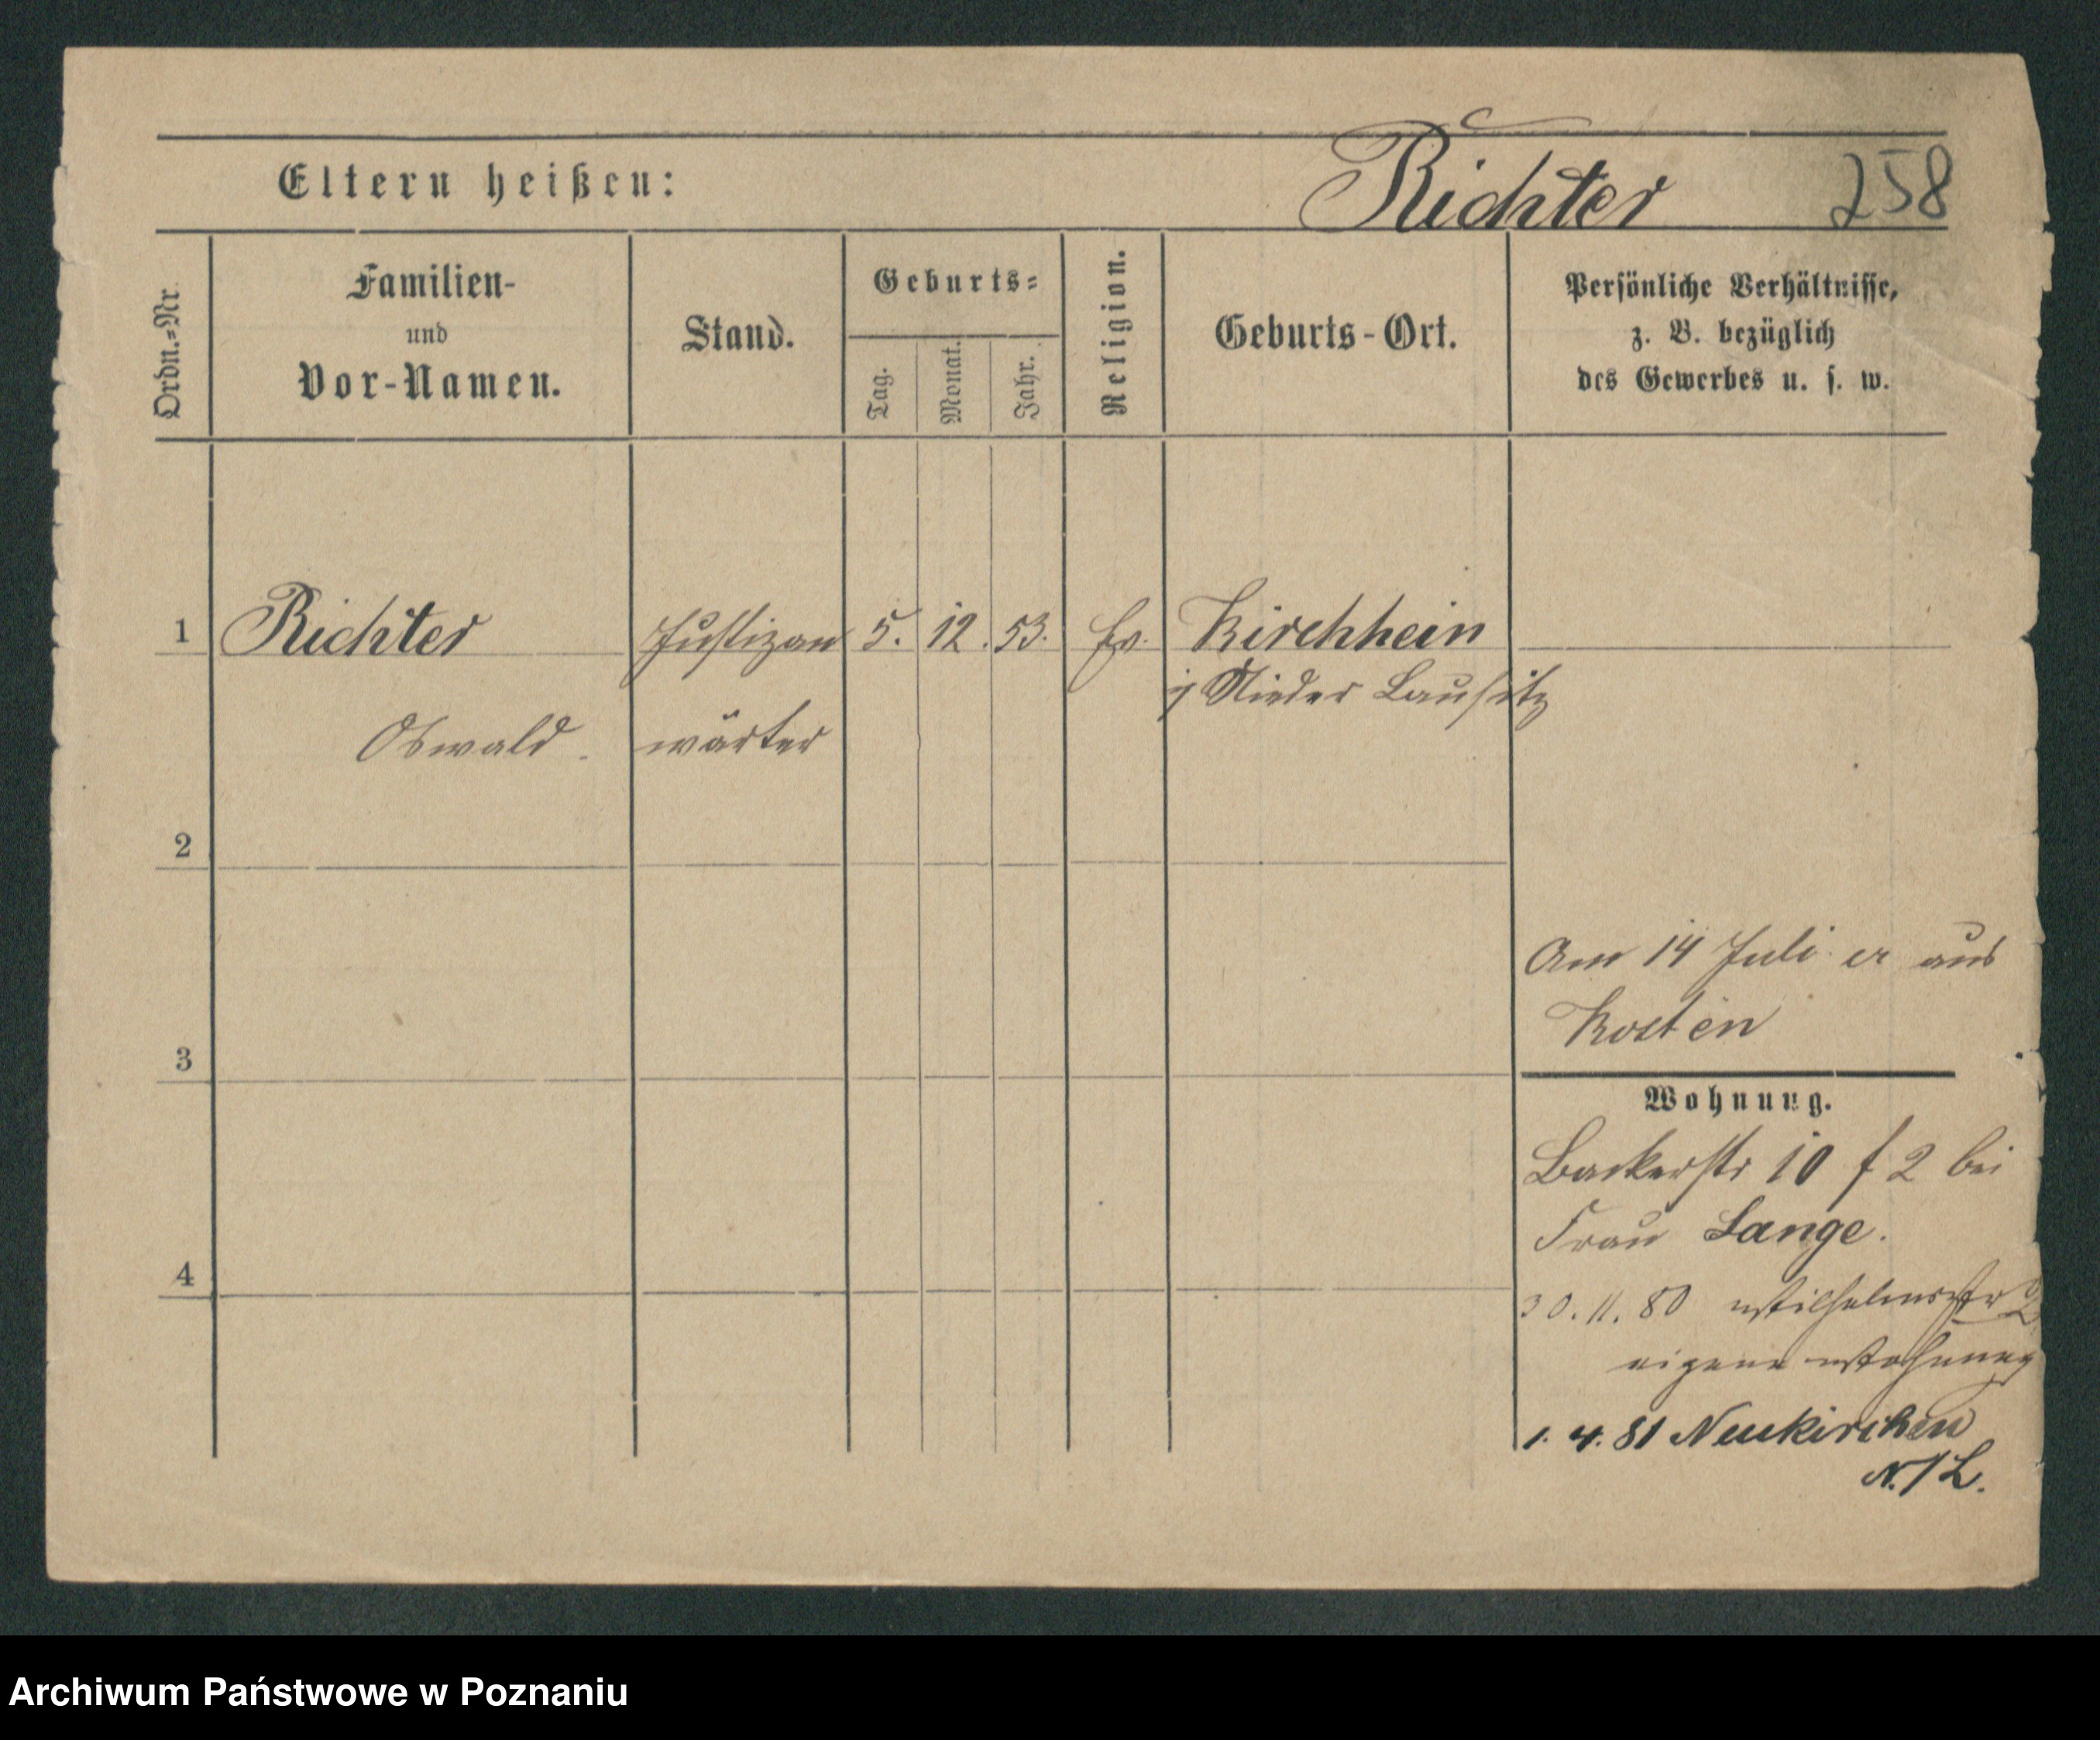 Eltern heißen: Richter 258
Ordn.=Nr.
Familien-
und
Vor-Namen.
Stand.
Geburts=
Tag.
Monat.
Jahr.
Religion.
Geburts-Ort.
Persönliche Verhältnisse,
z. B. bezüglich
des Gewerbes u. s. w.
1 Richter Justizan 5. 12. 53. Ev. Kirchhein
Nieder Lausitz
Oswald. wärter
2
Am 14 Juli cr aus
Kosten
3
Wohnung.
Backerstr 10 f 2 bei
Frau Lange.
4
30. 11. 80 Wilhelmsstr 2
eigene Wohnung
1. 4. 81 Neukirchen
N./L.
Archiwum Państwowe w Poznaniu